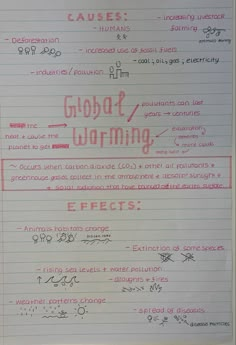 CAUSES:
- increasing livestock
- HUMANS
farming
- Deforestation
- increased use of fossil fuels
- coal, oil, gas, electricity
- industries / pollution
Global
Warming
pollutants can last
years → centuries
the
heat + cause the
planet to get
- Occurs when carbon dioxide (CO₂) + other air pollutants +
greenhouse gases collect in the atmosphere + absorb sunlight +
solar radiation that have
EFFECTS:
- Animals habitats change
- Extinction of some species
- rising sea levels + water pollution
- droughts + fires
- weather patterns change
- spread of diseases